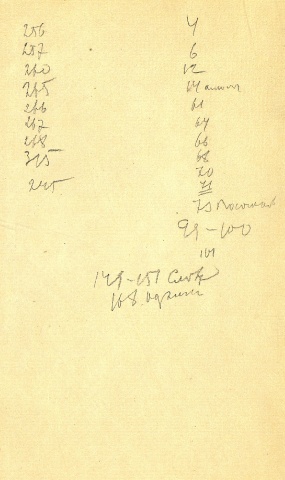 256
257
260
265
266
267
268
315
245
4
6
12
61
64
66
68
70
71
73
99-100
101
149-151
168